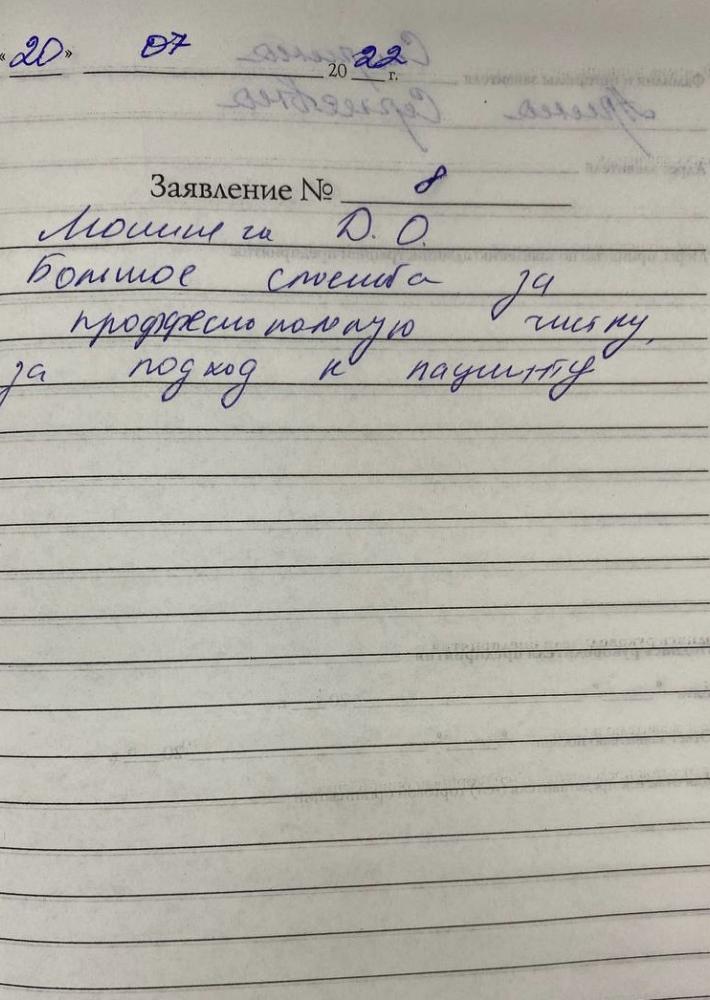 «20» 07 2022 г.
Заявление № 8
Д. О.
Большое спасибо за
проффесиональную чистку,
за подход к пациенту